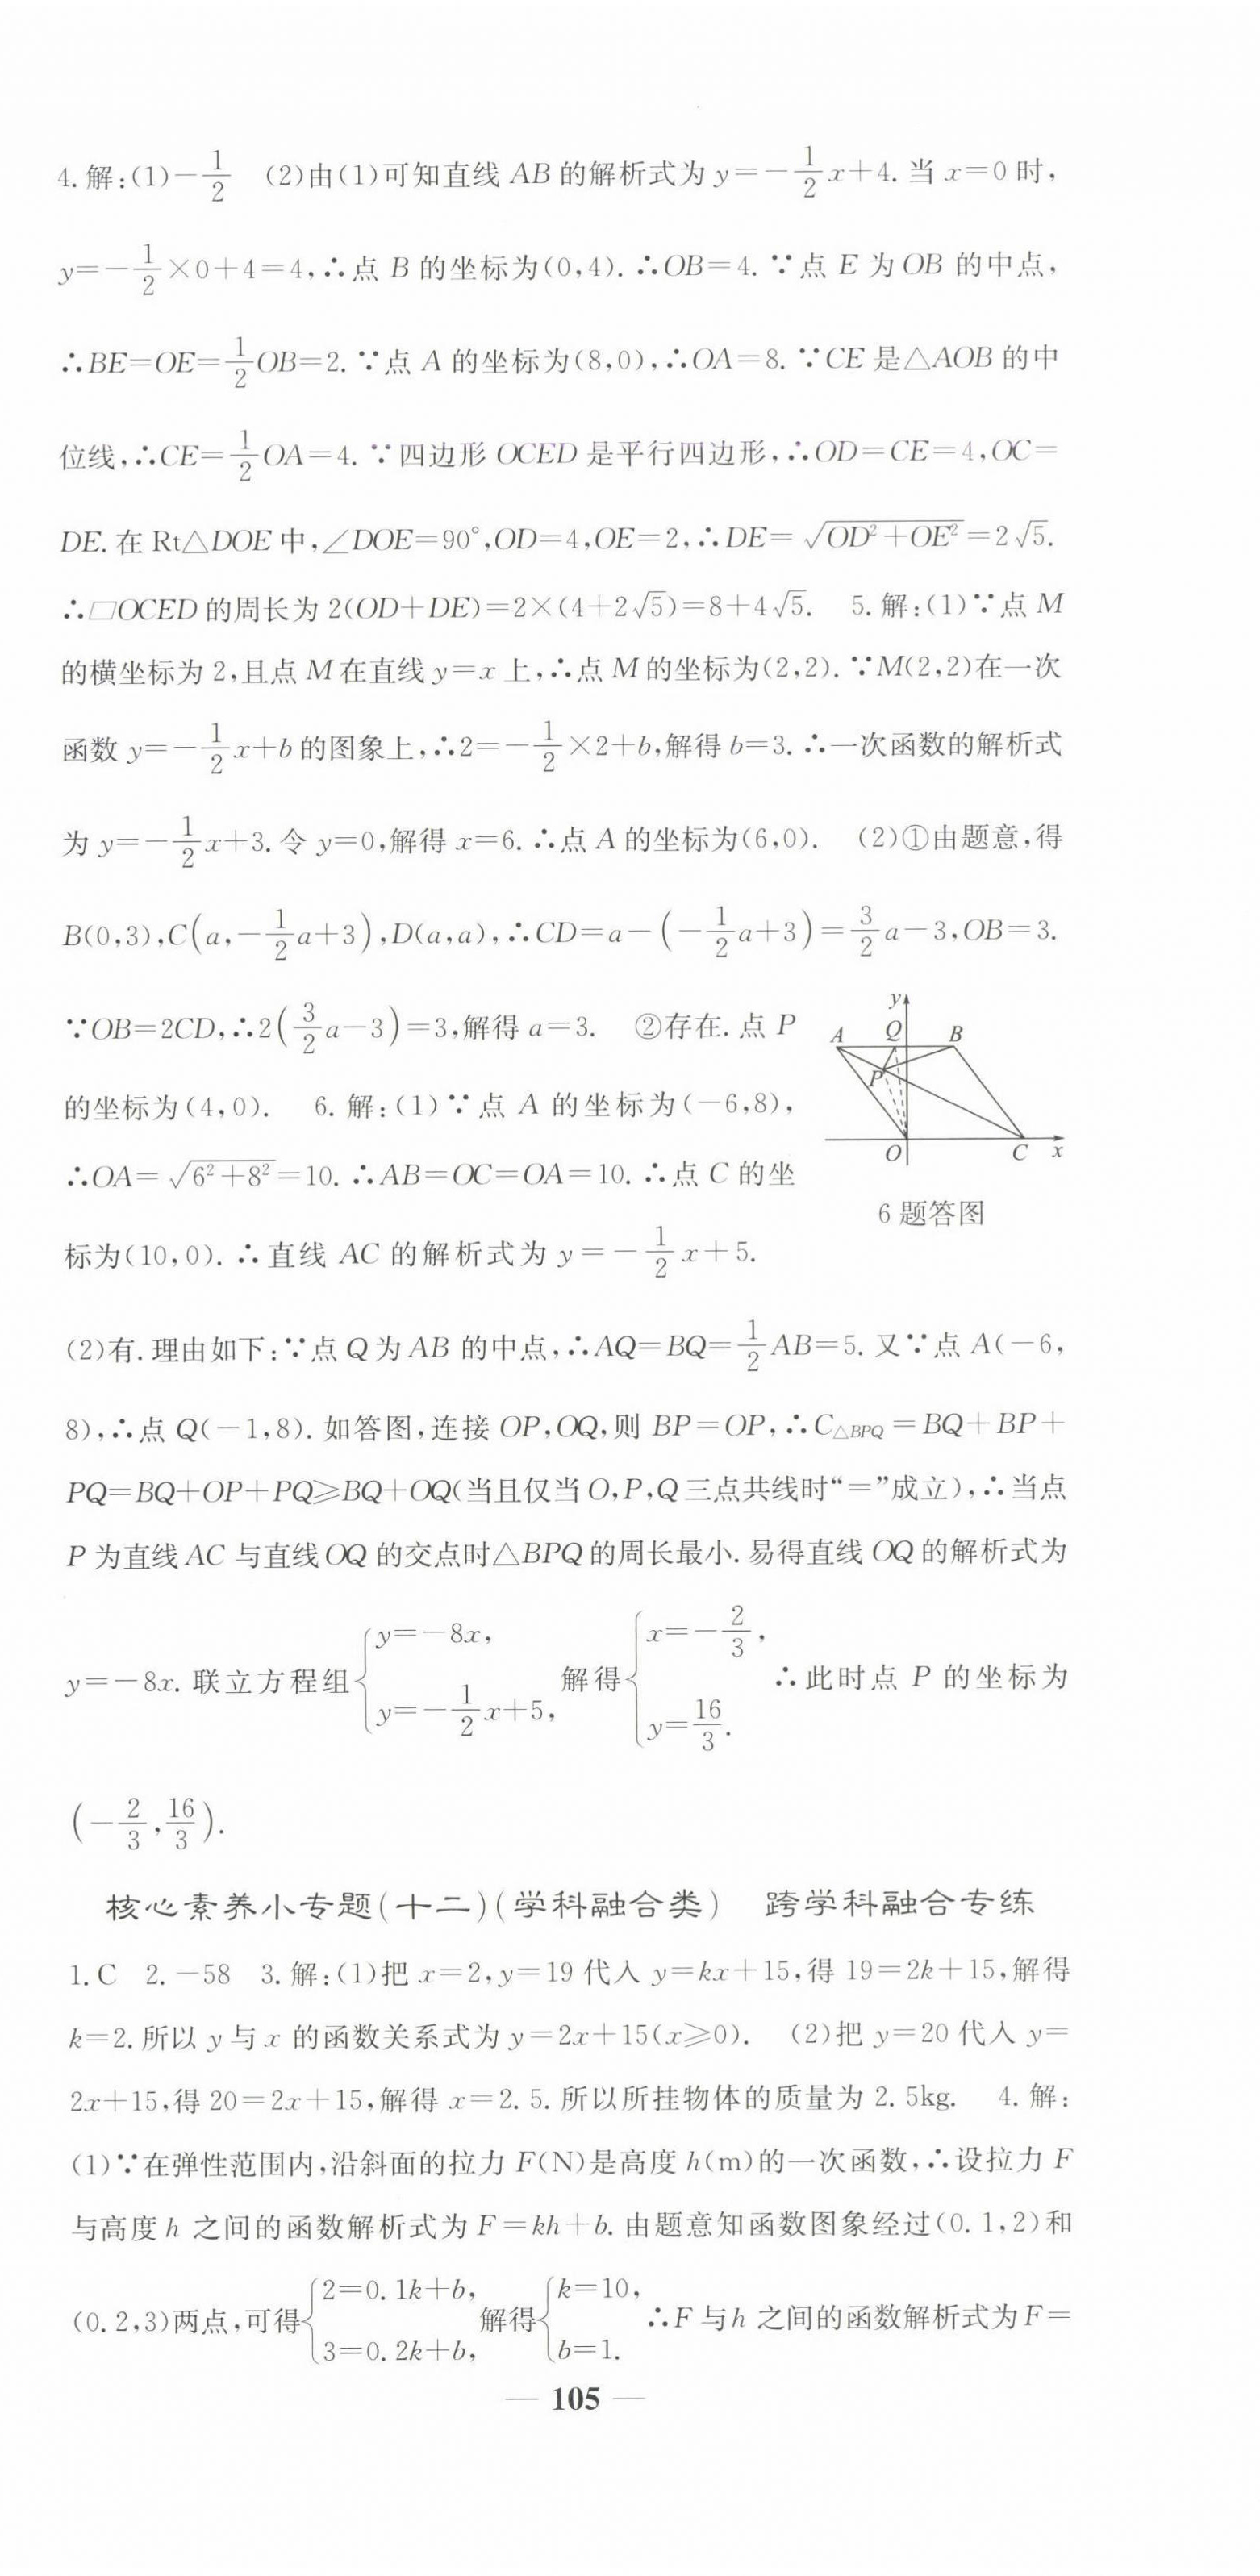 4.解:(1)−1/2 (2)由(1)可知直线 AB 的解析式为 y=−1/2x+4. 当 x=0 时,
y=−1/2×0+4=4,∴点 B 的坐标为(0,4). ∴OB=4. ∵点 E 为 OB 的中点,
∴BE=OE=1/2OB=2. ∵点 A 的坐标为(8,0),∴OA=8. ∵CE 是△AOB 的中
位线,∴CE=1/2OA=4. ∵四边形 OCED 是平行四边形,∴OD=CE=4,OC=
DE. 在 Rt△DOE 中,∠DOE=90°,OD=4,OE=2,∴DE=√(OD²+OE²)=2√5.
∴▱OCED 的周长为 2(OD+DE)=2×(4+2√5)=8+4√5. 5.解:(1)∵点 M
的横坐标为 2,且点 M 在直线 y=x 上,∴点 M 的坐标为(2,2). ∵M(2,2)在一次
函数 y=−1/2x+b 的图象上,∴2=−1/2×2+b,解得 b=3. ∴一次函数的解析式
为 y=−1/2x+3. 令 y=0,解得 x=6. ∴点 A 的坐标为(6,0). (2)①由题意,得
B(0,3),C(a,−1/2a+3),D(a,a),∴CD=a−(−1/2a+3)=3/2a−3,OB=3.
∵OB=2CD,∴2(3/2a−3)=3,解得 a=3. ②存在. 点 P
的坐标为(4,0). 6.解:(1)∵点 A 的坐标为(−6,8),
∴OA=√(6²+8²)=10. ∴AB=OC=OA=10. ∴点 C 的坐
标为(10,0). ∴直线 AC 的解析式为 y=−1/2x+5.
y
A Q B
P
O C x
6 题答图
(2)有. 理由如下:∵点 Q 为 AB 的中点,∴AQ=BQ=1/2AB=5. 又∵点 A(−6,
8),∴点 Q(−1,8). 如答图,连接 OP,OQ,则 BP=OP,∴C△BPQ=BQ+BP+
PQ=BQ+OP+PQ≥BQ+OQ(当且仅当 O,P,Q 三点共线时“=”成立),∴当点
P 为直线 AC 与直线 OQ 的交点时△BPQ 的周长最小. 易得直线 OQ 的解析式为
y=−8x. 联立方程组{y=−8x, y=−1/2x+5, 解得{x=−2/3, y=16/3. ∴此时点 P 的坐标为
(−2/3,16/3).
核心素养小专题(十二)(学科融合类) 跨学科融合专练
1.C 2.−58 3.解:(1)把 x=2,y=19 代入 y=kx+15,得 19=2k+15,解得
k=2. 所以 y 与 x 的函数关系式为 y=2x+15(x≥0). (2)把 y=20 代入 y=
2x+15,得 20=2x+15,解得 x=2.5. 所以所挂物体的质量为 2.5kg. 4.解:
(1)∵在弹性范围内,沿斜面的拉力 F(N)是高度 h(m)的一次函数,∴设拉力 F
与高度 h 之间的函数解析式为 F=kh+b. 由题意知函数图象经过(0.1,2)和
(0.2,3)两点,可得{2=0.1k+b, 3=0.2k+b, 解得{k=10, b=1. ∴F 与 h 之间的函数解析式为 F=
— 105 —